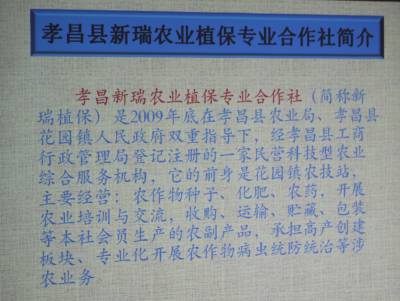 孝昌县新瑞农业植保专业合作社简介
孝昌新瑞农业植保专业合作社（简称新
瑞植保）是2009年底在孝昌县农业局、孝昌县
花园镇人民政府双重指导下，经孝昌县工商
行政管理局登记注册的一家民营科技型农业
综合服务机构，它的前身是花园镇农技站，
主要经营：农作物种子、化肥、农药，开展
农业培训与交流，收购、运输、贮藏、包装
等本社会员生产的农副产品，承担高产创建
板块、专业化开展农作物病虫统防统治等涉
农业务。